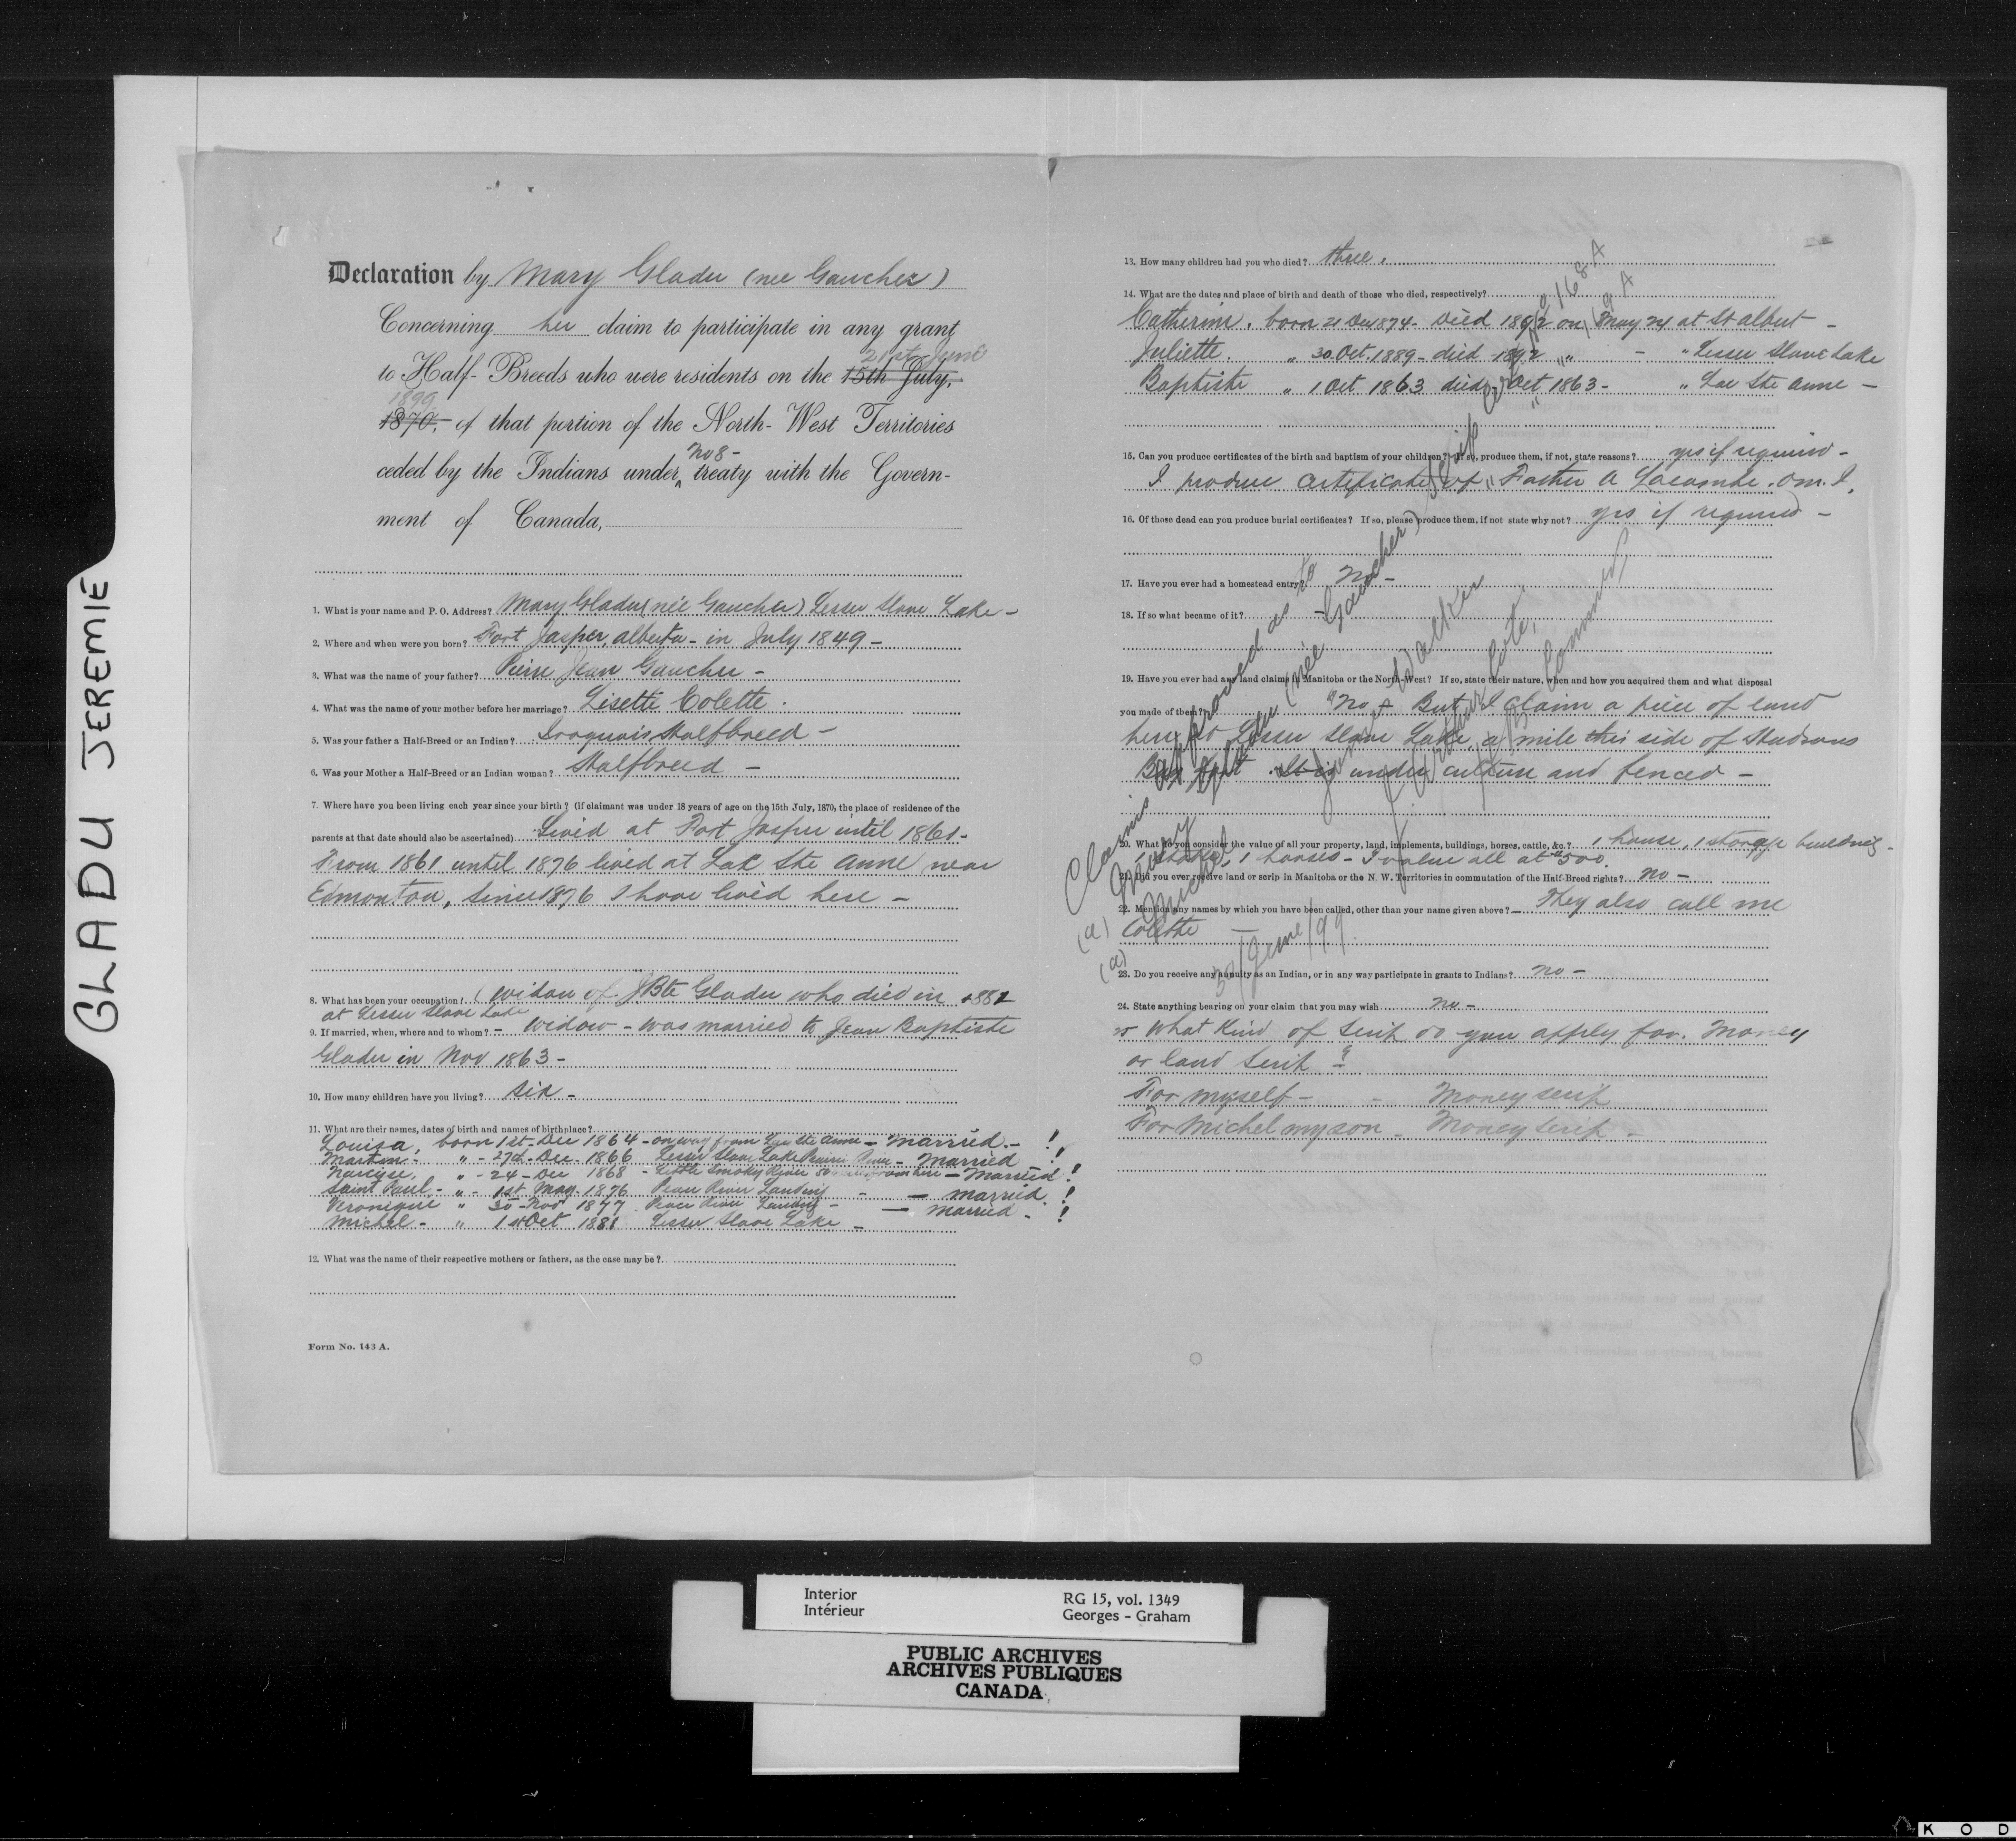 GLADU JEREMIE
Declaration by Mary Gladu (nee Gaucher)
Concerning her claim to participate in any grant
21st June
to Half-Breeds who were residents on the 15th July,
1899
1870, of that portion of the North-West Territories
No 8-
ceded by the Indians under treaty with the Govern-
ment of Canada,
1. What is your name and P. O. Address? Mary Gladu (née Gaucher) Lesser Slave Lake -
2. Where and when were you born? Fort Jasper, Alberta - in July 1849 -
3. What was the name of your father? Pierre Jean Gaucher -
4. What was the name of your mother before her marriage? Lisette Colette.
5. Was your father a Half-Breed or an Indian? Iroquois Halfbreed -
6. Was your Mother a Half-Breed or an Indian woman? Halfbreed -
7. Where have you been living each year since your birth? (if claimant was under 18 years of age on the 15th July, 1870, the place of residence of the
parents at that date should also be ascertained) Lived at Fort Jasper until 1861-
From 1861 until 1876 lived at Lac Ste Anne near
Edmonton, since 1876 I have lived here -
8. What has been your occupation? (Widow of JBte Gladu who died in 1882
at Lesser Slave Lake
9. If married, when, where and to whom? - Widow - was married to Jean Baptiste
Gladu in Nov 1863 -
10. How many children have you living? six -
11. What are their names, dates of birth and names of birthplace?
Louisa, born 1st Dec 1864 - on way from Lac Ste Anne - Married - !
Martin - " - 27d - Dec - 1866 Lesser Slave Lake Prairie River - Married !
Narcisse, " - 24 - Dec 1868 - Little Smoky River 80 from here - Married !
Saint Paul - " - 1st May 1876 Peace River Landing - - married. !
Veronique " 30 - Nov 1877 Peace River Landing - - married - !
Michel - " 1st Oct 1881 Lesser Slave Lake -
12. What was the name of their respective mothers or fathers, as the case may be?
Form No. 143 A.
13. How many children had you who died? three.
14. What are the dates and place of birth and death of those who died, respectively?
Catherine. born 21 Dec 1874 - Died 1892 on May 24 at St Albert -
Juliette. " 30 Oct. 1889 - died 1892 " - " Lesser Slave Lake
Baptiste " 1 Oct 1863 died Oct 1863 - " Lac Ste Anne -
15. Can you produce certificates of the birth and baptism of your children? If so, produce them, if not, state reasons? yes if required -
I produce certificate of Father A Lacombe. O.M.I.
16. Of those dead can you produce burial certificates? If so, please produce them, if not state why not? yes if required -
17. Have you ever had a homestead entry? No -
18. If so what became of it? -
19. Have you ever had any land claims in Manitoba or the North-West? If so, state their nature, when and how you acquired them and what disposal
you made of them? No - But I claim a piece of land
here at Lesser Slave Lake a mile this side of Hudsons
Bay Post. It is under culture and fenced -
20. What do you consider the value of all your property, land, implements, buildings, horses, cattle, &c.? 1 house, 1 storage building -
1 stable, 1 horses - I value all at $500.
21. Did you ever receive land or scrip in Manitoba or the N. W. Territories in commutation of the Half-Breed rights? no -
22. Mention any names by which you have been called, other than your name given above? - They also call me
Colette -
23. Do you receive any annuity as an Indian, or in any way participate in grants to Indians? no -
24. State anything bearing on your claim that you may wish no -
What kind of scrip do you apply for. Money
or land scrip ?
For myself - - Money scrip
For Michel my son - Money scrip -
Claims approved as to
(a) Mary Gladu (née Gaucher) Scrip cert 168 A
(a) Michel 119 A
James Walker
J. A. Coté
Commrs
30/June/99
Interior
Intérieur
RG 15, vol. 1349
Georges - Graham
PUBLIC ARCHIVES
ARCHIVES PUBLIQUES
CANADA
K O D